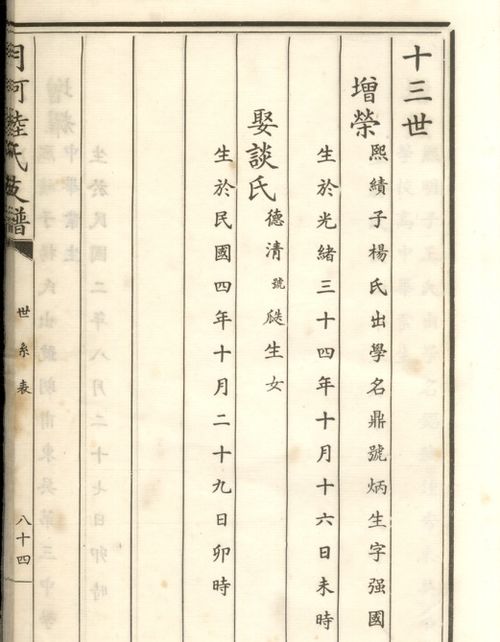 十三世
增榮
熙績子楊氏出學名鼎號炳生字强國
生於光緒三十四年十月十六日未時
娶談氏
德清號瓞生女
生於民國四年十月二十九日卯時
月河陸氏支譜
世系表
八十四